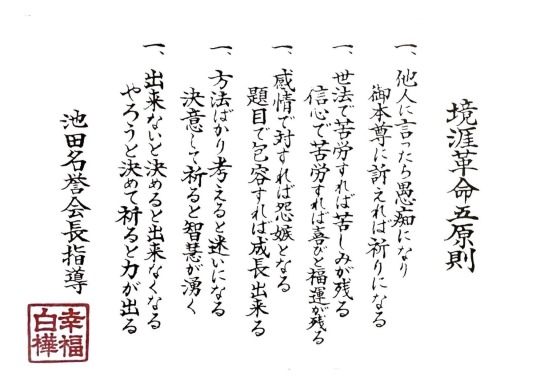 境涯革命五原則
一、他人に言ったら愚痴になり
御本尊に訴えれば祈りになる
一、世法で苦労すれば苦しみが残る
信心で苦労すれば喜びと福運が残る
一、感情で対すれば怨嫉となる
題目で包容すれば成長出来る
一、方法ばかり考えると迷いになる
決意して祈ると智慧が湧く
一、出来ないと決めると出来なくなる
やろうと決めて祈ると力が出る
池田名誉会長指導
幸福
白樺